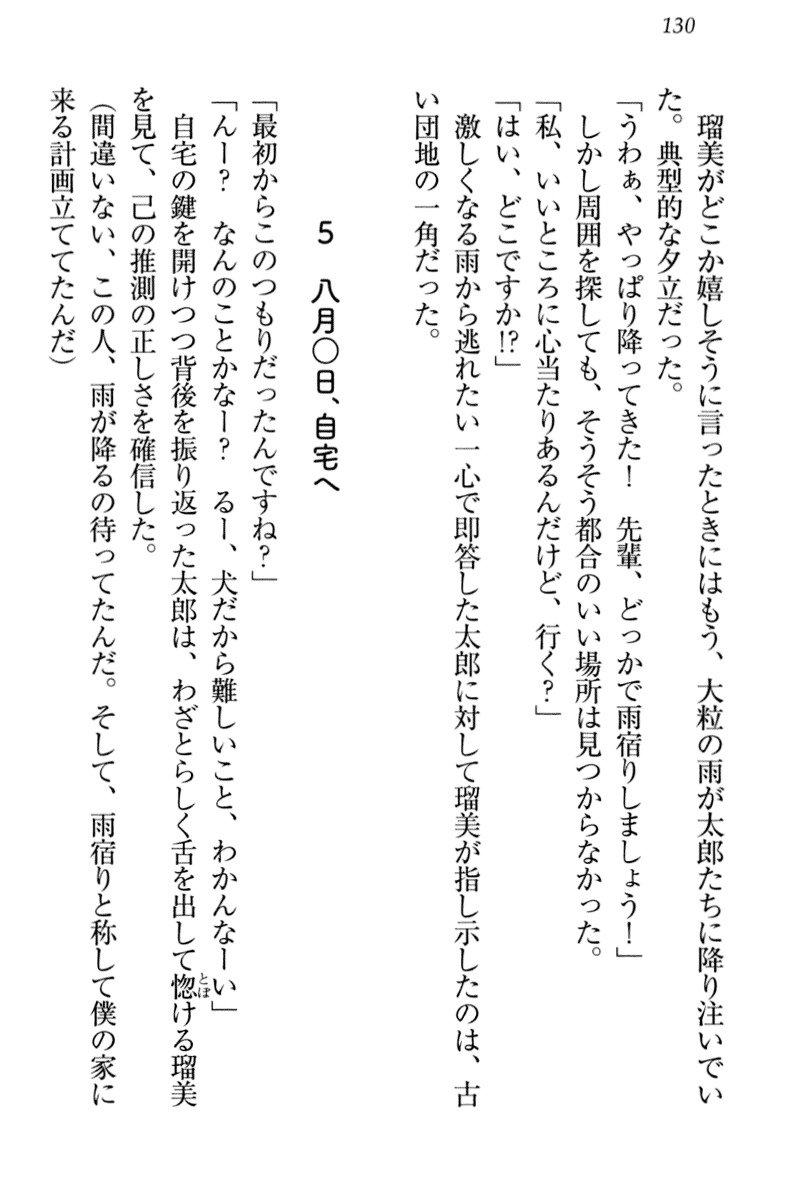 130
　瑠美がどこか嬉しそうに言ったときにはもう、大粒の雨が太郎たちに降り注いでい
た。典型的な夕立だった。
「うわぁ、やっぱり降ってきた！　先輩、どっかで雨宿りしましょう！」
　しかし周囲を探しても、そうそう都合のいい場所は見つからなかった。
「私、いいところに心当たりあるんだけど、行く？」
「はい、どこですか!?」
　激しくなる雨から逃れたい一心で即答した太郎に対して瑠美が指し示したのは、古
い団地の一角だった。
5　八月〇日、自宅へ
「最初からこのつもりだったんですね？」
「んー？　なんのことかなー？　るー、犬だから難しいこと、わかんなーい」
　自宅の鍵を開けつつ背後を振り返った太郎は、わざとらしく舌を出して惚ける瑠美
とぼ
を見て、己の推測の正しさを確信した。
（間違いない、この人、雨が降るの待ってたんだ。そして、雨宿りと称して僕の家に
来る計画立ててたんだ）